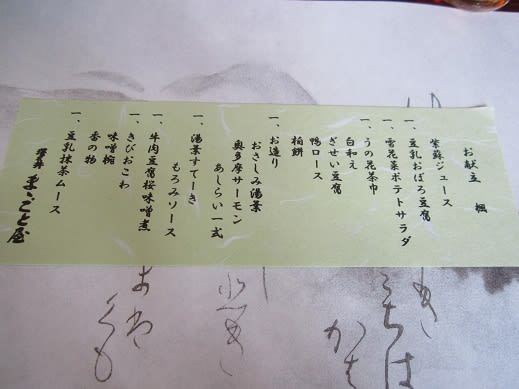 お献立　楓
紫蘇ジュース
一、豆乳おぼろ豆腐
一、雪花菜ポテトサラダ
一、うの花茶巾
白和え
ぎせい豆腐
鴨ロース
柏餅
一、お造り
おさしみ湯葉
奥多摩サーモン
あしらい一式
一、湯葉すてーき
もろみソース
一、牛肉豆腐桜味噌煮
一、きびおこわ
味噌椀
香の物
一、豆乳抹茶ムース
澤乃井 まゝごと屋